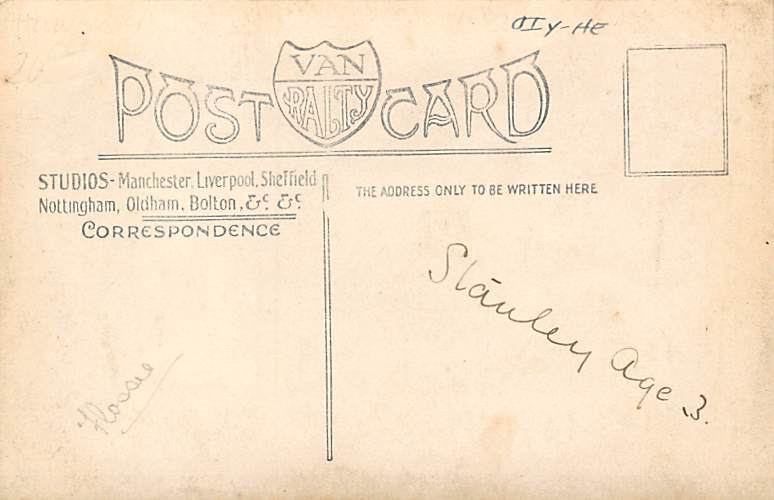 OIY-HE
POST VAN RALTY CARD
STUDIOS- Manchester, Liverpool, Sheffield
Nottingham, Oldham, Bolton, &c &c
CORRESPONDENCE
THE ADDRESS ONLY TO BE WRITTEN HERE
Stanley Age 3.
Flossie